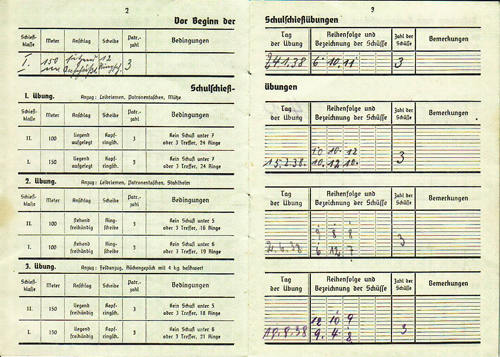 2
Vor Beginn der
Schieß-klasse Meter Anschlag Scheibe Patr.-zahl Bedingungen
I. 150 12 3
Schulschieß-
1. Übung. Anzug: Leibriemen, Patronentaschen, Mütze
Schieß-klasse Meter Anschlag Scheibe Patr.-zahl Bedingungen
II. 100 liegend aufgelegt Kopf-ringsch. 3 Kein Schuß unter 7 oder 3 Treffer, 24 Ringe
I. 150 liegend aufgelegt Kopf-ringsch. 3 Kein Schuß unter 7 oder 3 Treffer, 24 Ringe
2. Übung. Anzug: Leibriemen, Patronentaschen, Stahlhelm
Schieß-klasse Meter Anschlag Scheibe Patr.-zahl Bedingungen
II. 100 stehend freihändig Ring-scheibe 3 Kein Schuß unter 5 oder 3 Treffer, 18 Ringe
I. 100 stehend freihändig Ring-scheibe 3 Kein Schuß unter 6 oder 3 Treffer, 19 Ringe
3. Übung. Anzug: Feldanzug, Rückengepäck mit 4 kg beschwert
Schieß-klasse Meter Anschlag Scheibe Patr.-zahl Bedingungen
II. 150 liegend freihändig Kopf-ringsch. 3 Kein Schuß unter 5 oder 3 Treffer, 18 Ringe
I. 150 liegend freihändig Kopf-ringsch. 3 Kein Schuß unter 6 oder 3 Treffer, 21 Ringe
3
Schulschießübungen
Tag der Übung Reihenfolge und Bezeichnung der Schüsse Zahl der Schüsse Bemerkungen
6 10. 11. 3
Übungen
Tag der Übung Reihenfolge und Bezeichnung der Schüsse Zahl der Schüsse Bemerkungen
10 10. 12
15.2.38 10. 12 10. 3
Tag der Übung Reihenfolge und Bezeichnung der Schüsse Zahl der Schüsse Bemerkungen
9 8 8
6 12 7 3
Tag der Übung Reihenfolge und Bezeichnung der Schüsse Zahl der Schüsse Bemerkungen
12 10 9
9. 4. 8 3